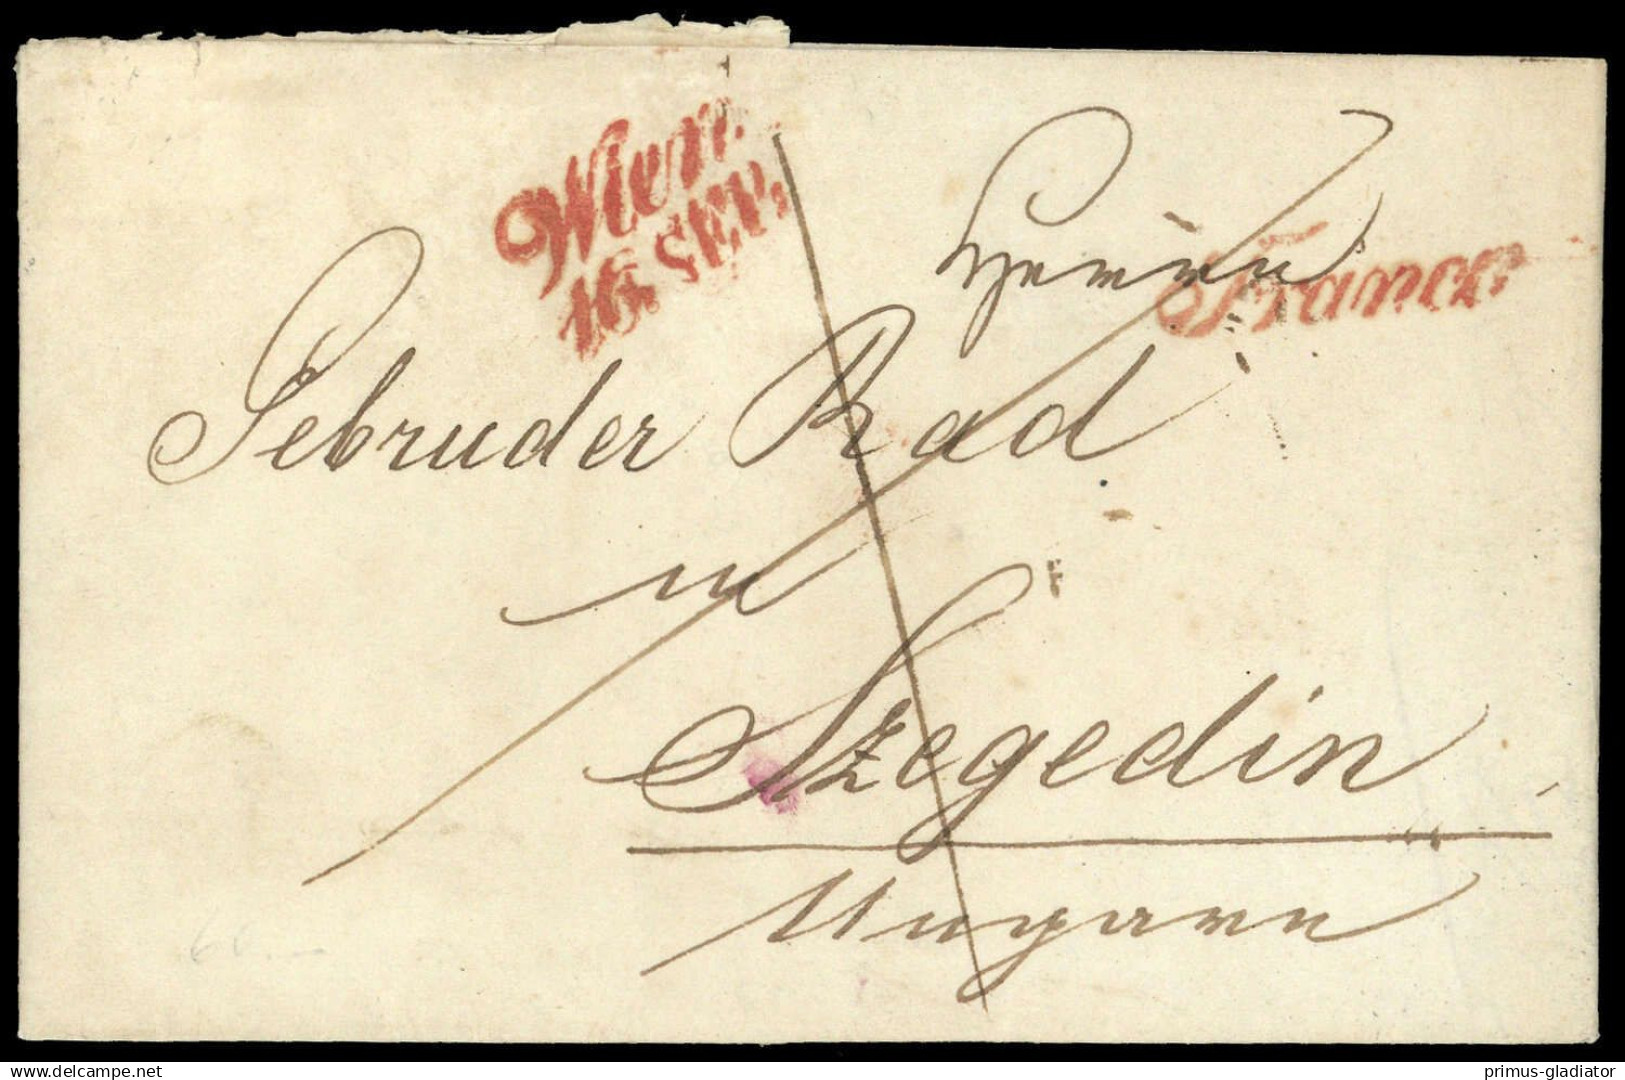 Wien.
16. SEP.
Herrn
Franco
Gebruder Rad
in
Szegedin
Ungarn
delcampe.net
primus-gladiator